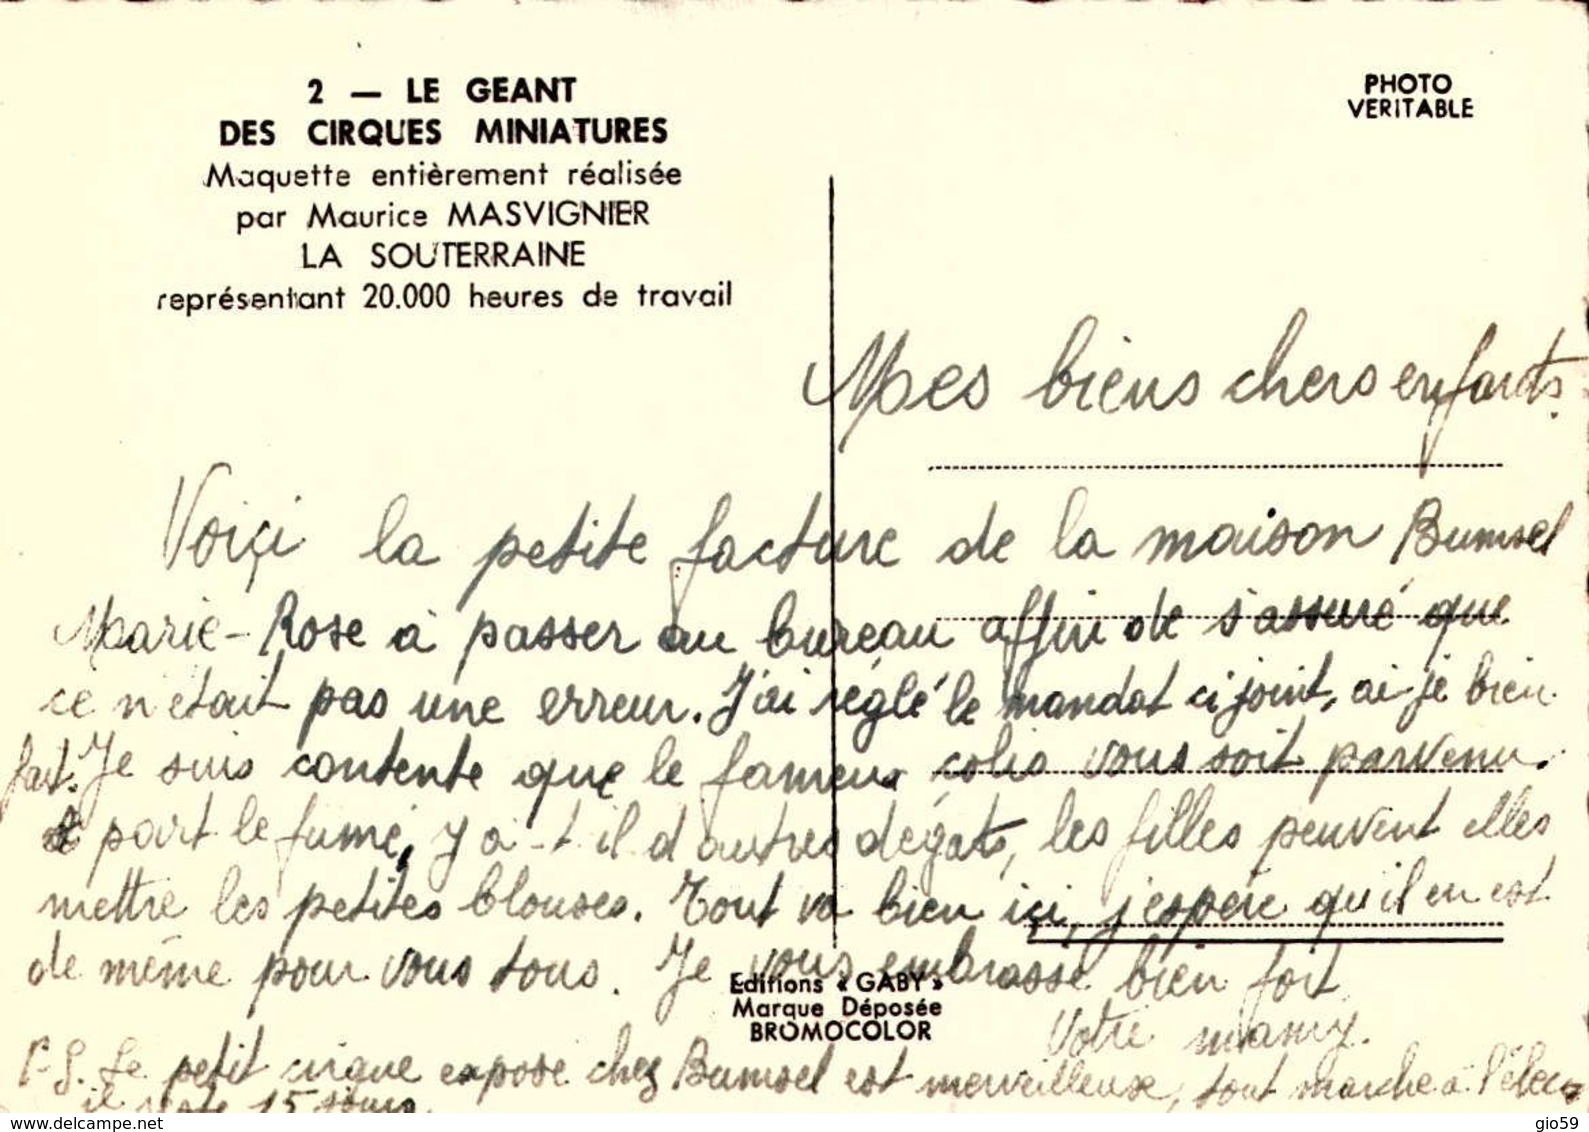 2 — LE GEANT
DES CIRQUES MINIATURES
Maquette entièrement réalisée
par Maurice MASVIGNIER
LA SOUTERRAINE
représentant 20.000 heures de travail
PHOTO
VERITABLE
Mes biens chers enfants.
Voiçi la petite facture de la maison Bumsel
Marie-Rose à passer au bureau affin de s'assuré que
ce n'était pas une erreur. J'ai réglé le mandat ci joint, ai-je bien
fait. Je suis contente que le fameux colis vous soit parvenu.
à part le fumé, y a-t-il d'autres dégats, les filles peuvent elles
mettre les petites blouses. Tout va bien içi, j'espére qu'il en est
de même pour vous tous. Je vous embrasse bien fort
Votre mamy.
Editions « GABY »
Marque Déposée
BROMOCOLOR
P-S. Le petit cirque exposé chez Bumsel est merveilleuse, tout marche à l'élec
il reste 15 jours.
www.delcampe.net
gio59